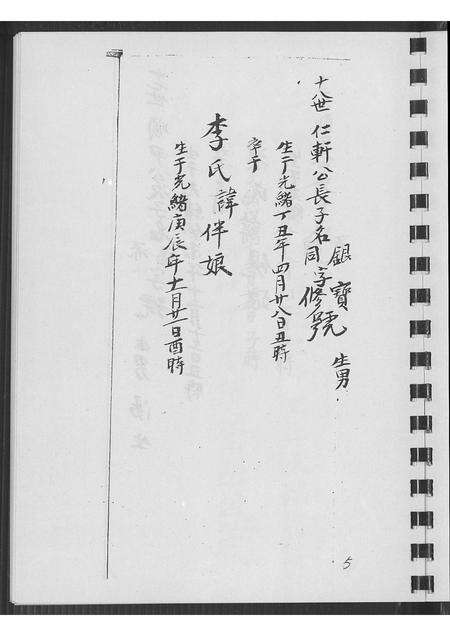 十世 仁軒公長子名同字修號 生男
銀寶
生于光緒丁丑年四月廿八日丑時
卒于
李氏諱伴娘
生于光緒庚辰年十一月廿一日酉時
5